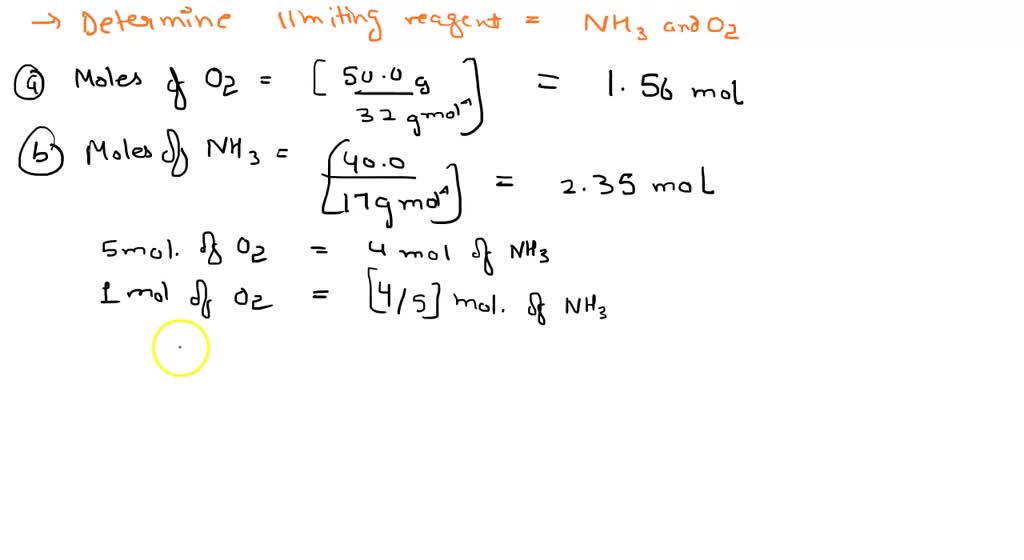 → Determine limiting reagent = NH3 and O2
(a) Moles of O2 = [50.0 g / 32 gmol⁻¹] = 1.56 mol
(b) Moles of NH3 = [40.0 / 17 g mol⁻¹] = 2.35 mol
5 mol. of O2 = 4 mol of NH3
1 mol of O2 = [4/5] mol. of NH3